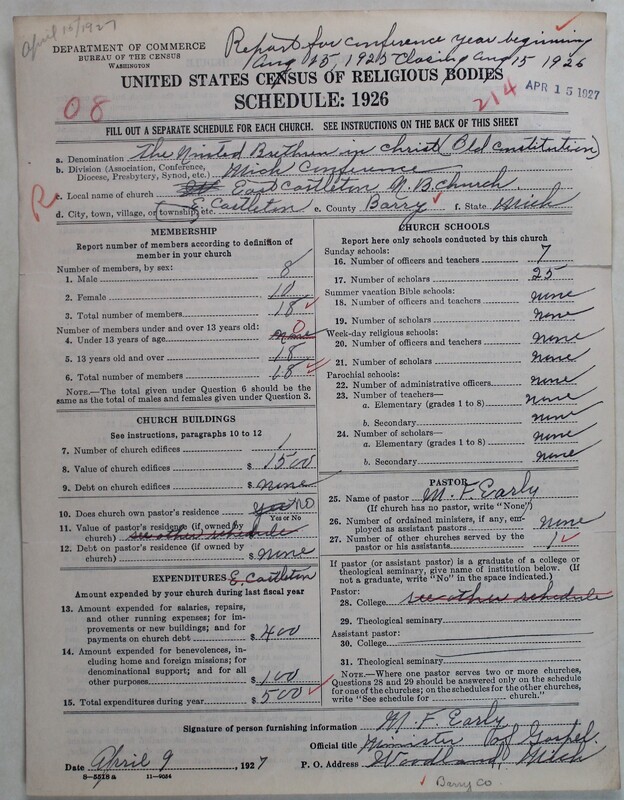 April 15/1927
DEPARTMENT OF COMMERCE
BUREAU OF THE CENSUS
WASHINGTON
Report for conference year beginning
Aug 25 1925 closing Aug 15 1926
UNITED STATES CENSUS OF RELIGIOUS BODIES
SCHEDULE: 1926
08
214
APR 15 1927
FILL OUT A SEPARATE SCHEDULE FOR EACH CHURCH. SEE INSTRUCTIONS ON THE BACK OF THIS SHEET
a. Denomination The United Brethren in Christ (Old Constitution)
b. Division (Association, Conference, Diocese, Presbytery, Synod, etc.) Mich Conference
c. Local name of church East Castleton U. B. church
R
d. City, town, village, or township, etc. E. Castleton e. County Barry f. State Mich
MEMBERSHIP
Report number of members according to definition of
member in your church
Number of members, by sex:
1. Male 8
2. Female 10
3. Total number of members 18
Number of members under and over 13 years old:
4. Under 13 years of age none 0
5. 13 years old and over 18
6. Total number of members 18
NOTE.—The total given under Question 6 should be the
same as the total of males and females given under Question 3.
CHURCH BUILDINGS
See instructions, paragraphs 10 to 12
7. Number of church edifices 1
8. Value of church edifices $ 1500
9. Debt on church edifices $ none
10. Does church own pastor's residence Yes NO
Yes or No
11. Value of pastor's residence (if owned by
church) see other schedule
12. Debt on pastor's residence (if owned by
church) $ none
EXPENDITURES E. Castleton
Amount expended by your church during last fiscal year
13. Amount expended for salaries, repairs,
and other running expenses; for im-
provements or new buildings; and for
payments on church debt $ 400
14. Amount expended for benevolences, in-
cluding home and foreign missions; for
denominational support; and for all
other purposes $ 100
15. Total expenditures during year $ 500
CHURCH SCHOOLS
Report here only schools conducted by this church
Sunday schools:
16. Number of officers and teachers 7
17. Number of scholars 25
Summer vacation Bible schools:
18. Number of officers and teachers none
19. Number of scholars none
Week-day religious schools:
20. Number of officers and teachers none
21. Number of scholars none
Parochial schools:
22. Number of administrative officers none
23. Number of teachers—
a. Elementary (grades 1 to 8) none
b. Secondary none
24. Number of scholars—
a. Elementary (grades 1 to 8) none
b. Secondary none
PASTOR
25. Name of pastor M. F. Early
(If church has no pastor, write "None")
26. Number of ordained ministers, if any, em-
ployed as assistant pastors none
27. Number of other churches served by the
pastor or his assistants 1
If pastor (or assistant pastor) is a graduate of a college or
theological seminary, give name of institution below. (If
not a graduate, write "No" in the space indicated.)
Pastor:
28. College see other schedule
29. Theological seminary
Assistant pastor:
30. College
31. Theological seminary
NOTE.—Where one pastor serves two or more churches,
Questions 28 and 29 should be answered only on the schedule
for one of the churches; on the schedules for the other churches,
write "See schedule for ______ church."
Signature of person furnishing information M. F. Early
Official title Minister of Gospel.
Date April 9, 1927 P. O. Address Woodland, Mich
8—5518 a 11—9054
Barry Co.